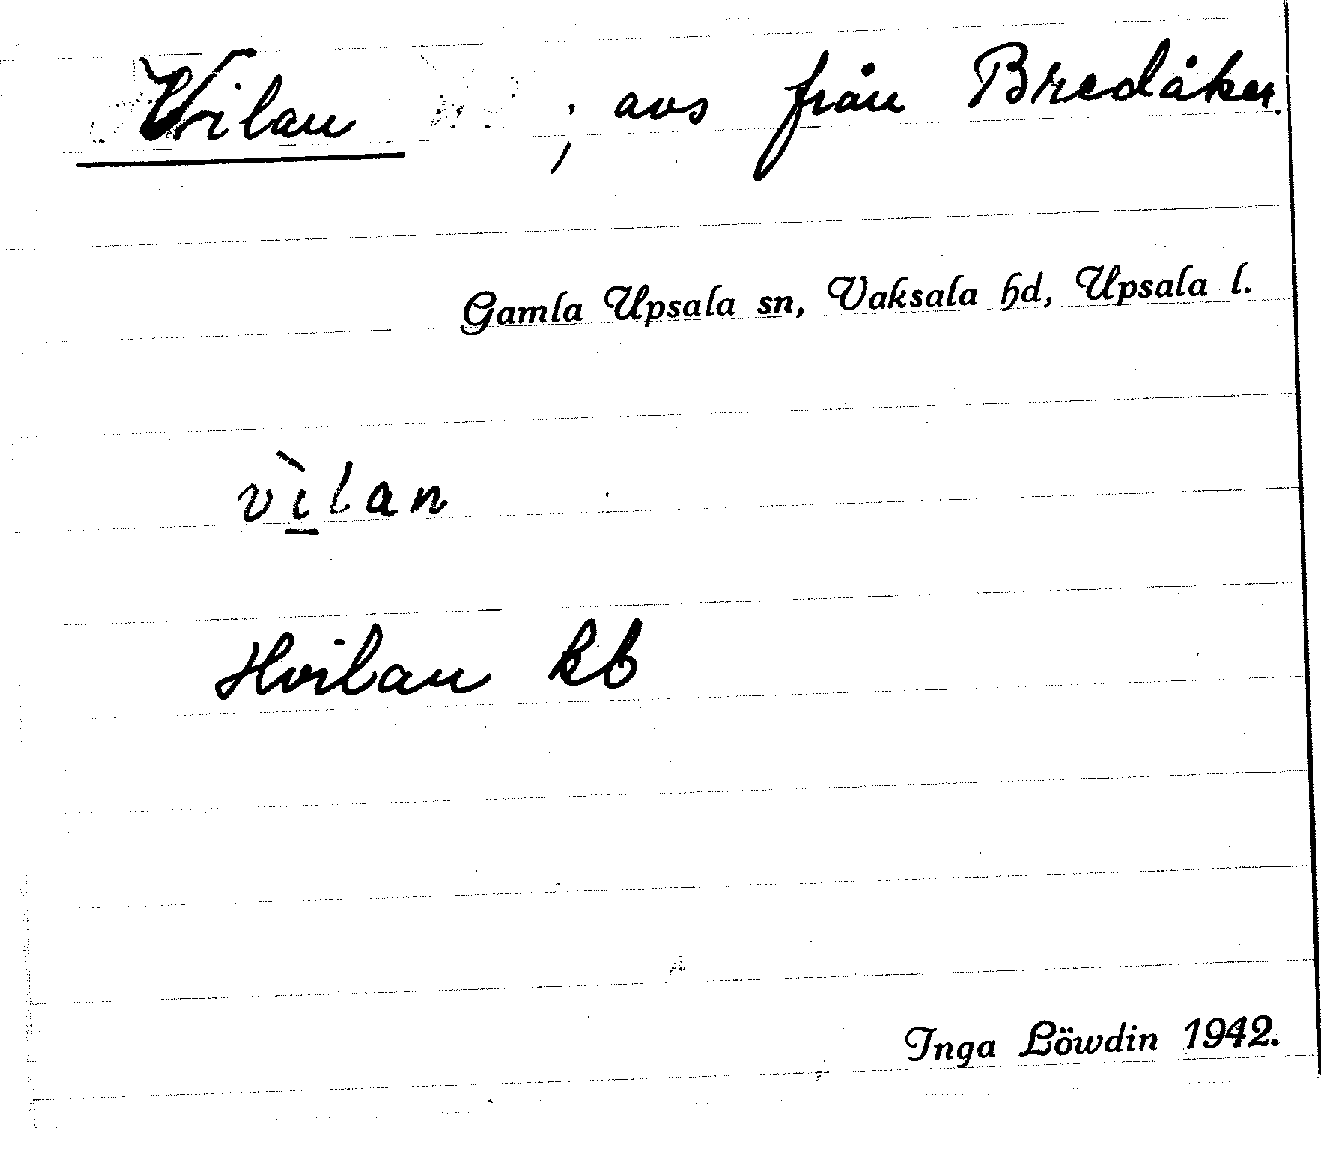 Vilan ; avs från Bredåker.
Gamla Upsala sn, Vaksala hd, Upsala l.
vìlan
Hvilan kb
Inga Löwdin 1942.